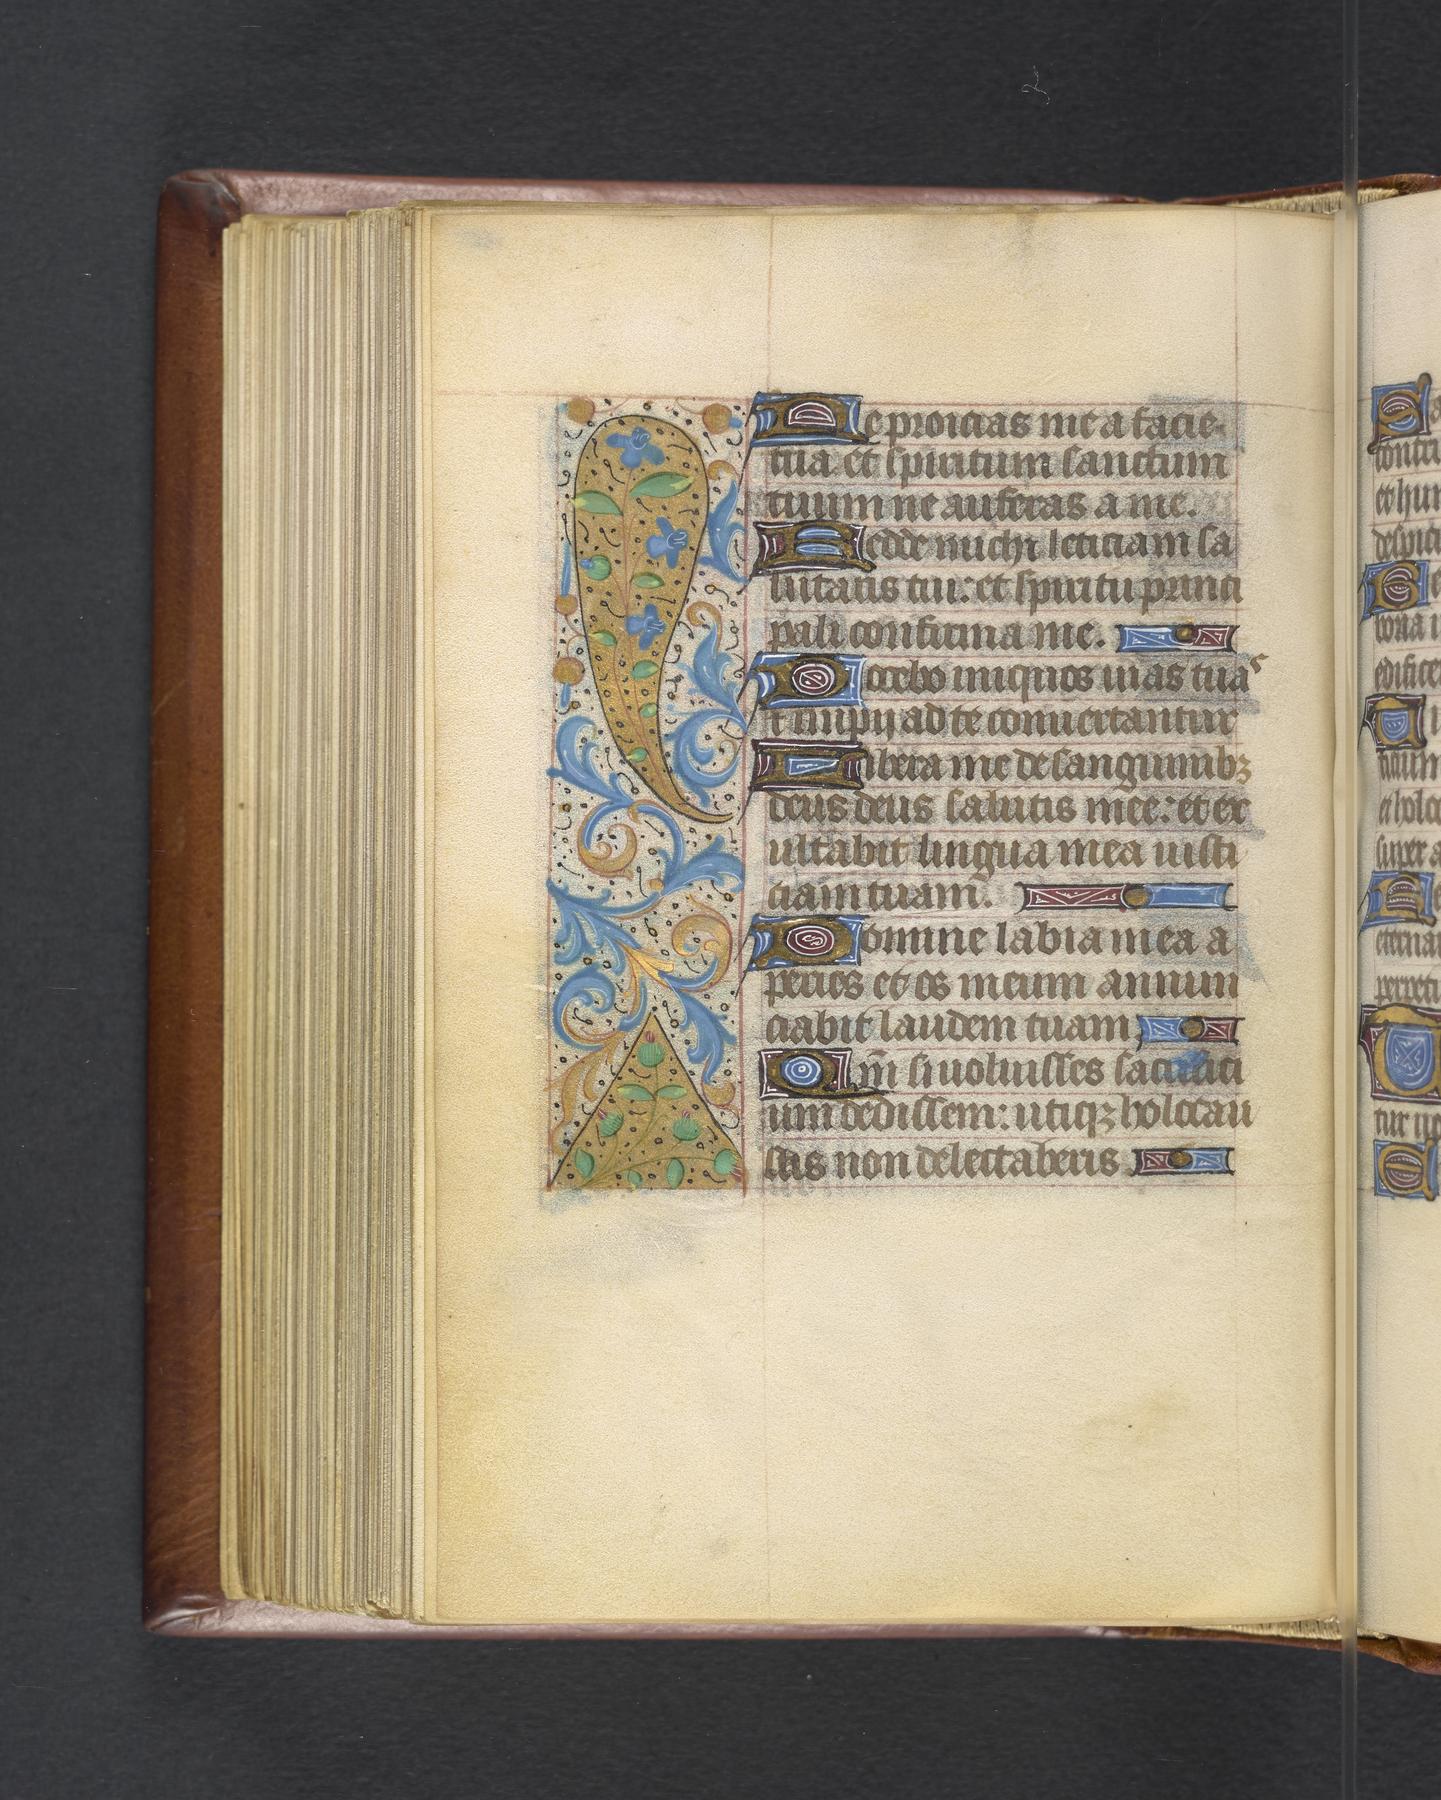 Ne proicias me a facie
tua et spiritum sanctum
tuum ne auferas a me.
Redde michi leticiam sa
lutaris tui: et spiritu princi
pali confirma me.
Docebo iniquos uias tuas
et impij ad te conuertantur
Libera me de sanguinibꝫ
deus deus salutis mee: et ex
ultabit lingua mea iusti
ciam tuam.
Domine labia mea a
peries et os meum annun
ciabit laudem tuam
Qm̄ si uoluisses sacrifici
um dedissem: utiqꝫ holocau
stis non delectaberis